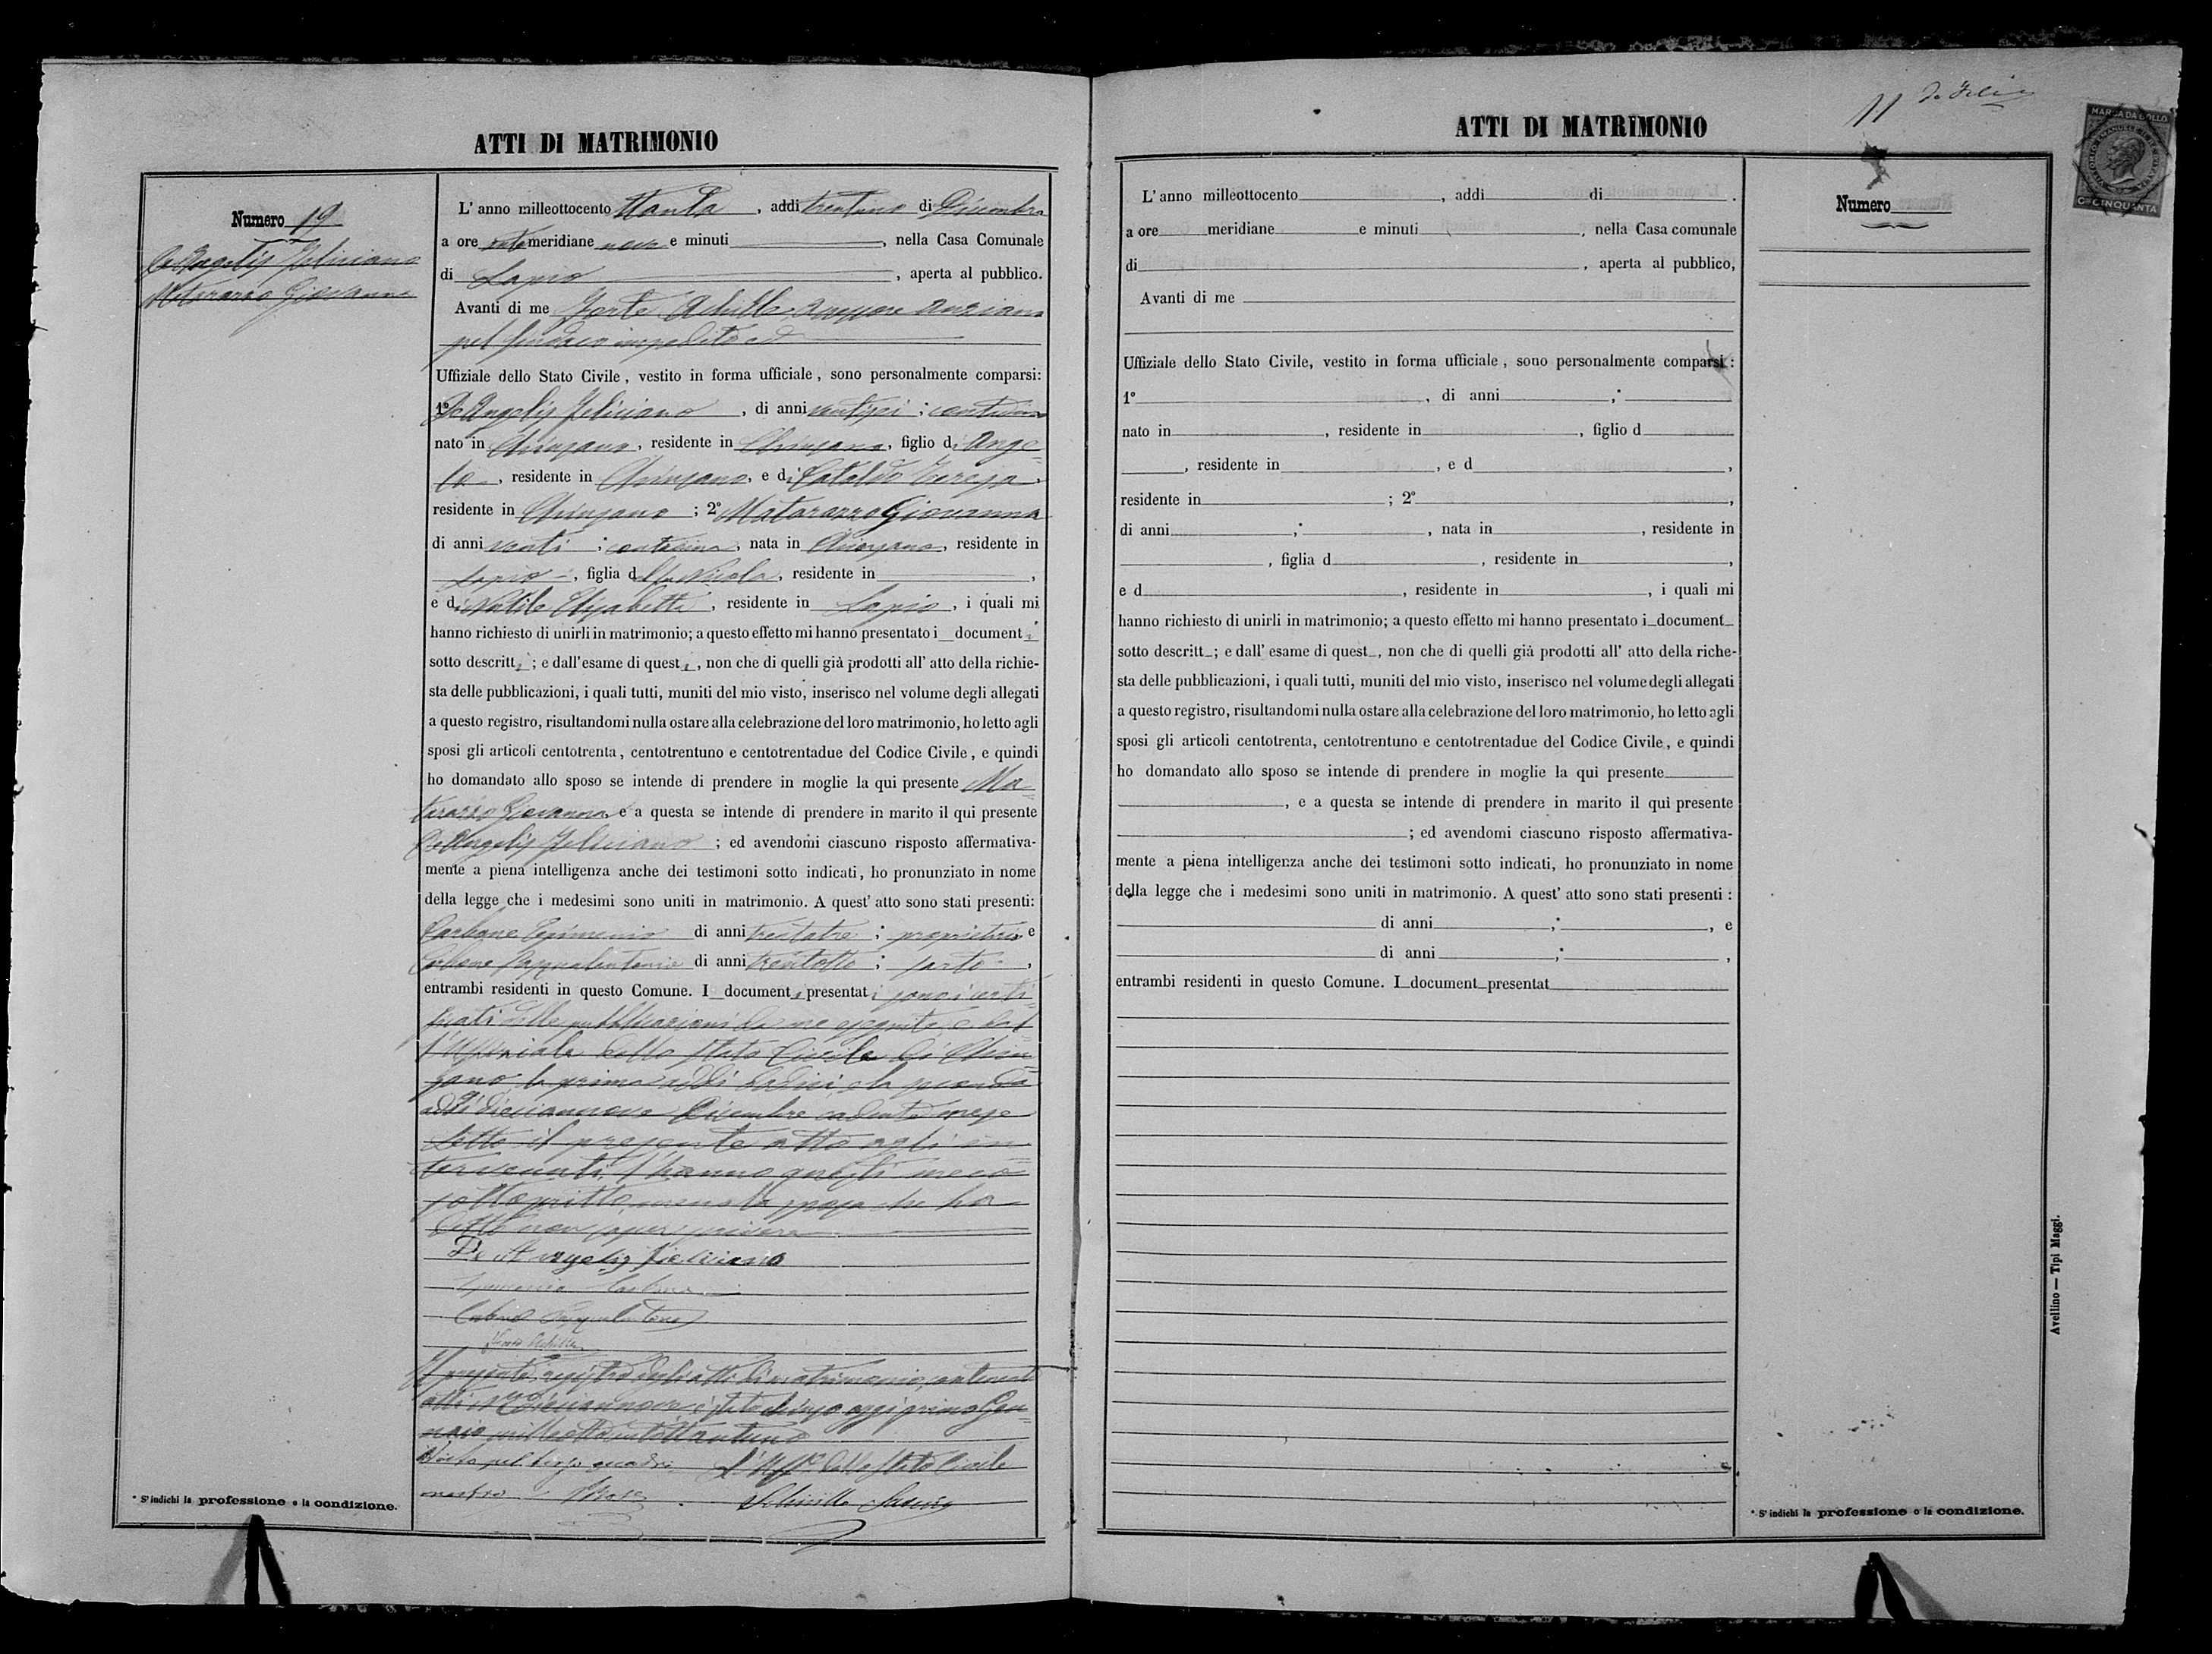 ATTI DI MATRIMONIO
Numero 19
De Angelis Feliciano
Matarazzo Giovanna
L' anno milleottocento ttanta, addi trentuno di Dicembre
a ore ante meridiane nove e minuti , nella Casa Comunale
di Lapio , aperta al pubblico.
Avanti di me Forte Achille Assessore Anziano
pel Sindaco impedito ed
Uffiziale dello Stato Civile, vestito in forma ufficiale, sono personalmente comparsi:
1º De Angelis Feliciano , di anni ventisei ; contadino
nato in Chiusano, residente in Chiusano, figlio di Ange-
lo , residente in Chiusano, e di Cataldo Teresa,
residente in Chiusano ; 2º Matarazzo Giovanna
di anni venti ; contadina, nata in Chiusano, residente in
Lapio , figlia del fu Nicola, residente in ,
e di Elisabetta , residente in Lapio , i quali mi
hanno richiesto di unirli in matrimonio; a questo effetto mi hanno presentato i documenti
sotto descritti; e dall'esame di questi, non che di quelli già prodotti all' atto della richie-
sta delle pubblicazioni, i quali tutti, muniti del mio visto, inserisco nel volume degli allegati
a questo registro, risultandomi nulla ostare alla celebrazione del loro matrimonio, ho letto agli
sposi gli articoli centotrenta, centotrentuno e centotrentadue del Codice Civile, e quindi
ho domandato allo sposo se intende di prendere in moglie la qui presente Ma-
tarazzo Giovanna e a questa se intende di prendere in marito il qui presente
De Angelis Feliciano ; ed avendomi ciascuno risposto affermativa-
mente a piena intelligenza anche dei testimoni sotto indicati, ho pronunziato in nome
della legge che i medesimi sono uniti in matrimonio. A quest' atto sono stati presenti:
Carbone Epimenio di anni trentatre ; proprietario e
Carbone Pasqualantonio di anni trentotto ; sarto ,
entrambi residenti in questo Comune. I documenti presentati sono i certi-
ficati delle pubblicazioni da me eseguite e dal
l'Uffiziale dello Stato Civile di Chiu
sano, la prima addi dodici, e la seconda
addi diciannove Dicembre cadente mese
Letto il presente atto agli in
tervenuti, l'hanno questi meco
sottoscritto, meno la sposa che ha
detto non sapere scrivere
De Angelis Feliciano
Epimenio Carbone
Carbone Pasqualantonio
Forte Achille
Il presente registro degli atti di matrimonio contenente
atti Nº diciannove è stato chiuso oggi primo Gen-
naio milleottocentottantuno
Visto pel terzo quadri L'Uff.le dello Stato Civile
mestre
* S' indichi la professione o la condizione.
ATTI DI MATRIMONIO
11 De Felici
MARCA DA BOLLO
Cᵐⁱ CINQUANTA
Numero
L' anno milleottocento , addi di .
a ore meridiane e minuti , nella Casa comunale
di , aperta al pubblico,
Avanti di me
Uffiziale dello Stato Civile, vestito in forma ufficiale, sono personalmente comparsi:
1º , di anni ;
nato in , residente in , figlio d
, residente in , e d ,
residente in ; 2º ,
di anni ; , nata in , residente in
, figlia d , residente in ,
e d , residente in , i quali mi
hanno richiesto di unirli in matrimonio; a questo effetto mi hanno presentato i document
sotto descritt ; e dall' esame di quest , non che di quelli già prodotti all' atto della riche-
sta delle pubblicazioni, i quali tutti, muniti del mio visto, inserisco nel volume degli allegati
a questo registro, risultandomi nulla ostare alla celebrazione del loro matrimonio, ho letto agli
sposi gli articoli centotrenta, centotrentuno e centotrentadue del Codice Civile, e quindi
ho domandato allo sposo se intende di prendere in moglie la qui presente
, e a questa se intende di prendere in marito il qui presente
; ed avendomi ciascuno risposto affermativa-
mente a piena intelligenza anche dei testimoni sotto indicati, ho pronunziato in nome
della legge che i medesimi sono uniti in matrimonio. A quest' atto sono stati presenti :
di anni ; , e
di anni ; ,
entrambi residenti in questo Comune. I document presentat
Avellino — Tipi Maggi.
* S' indichi la professione o la condizione.